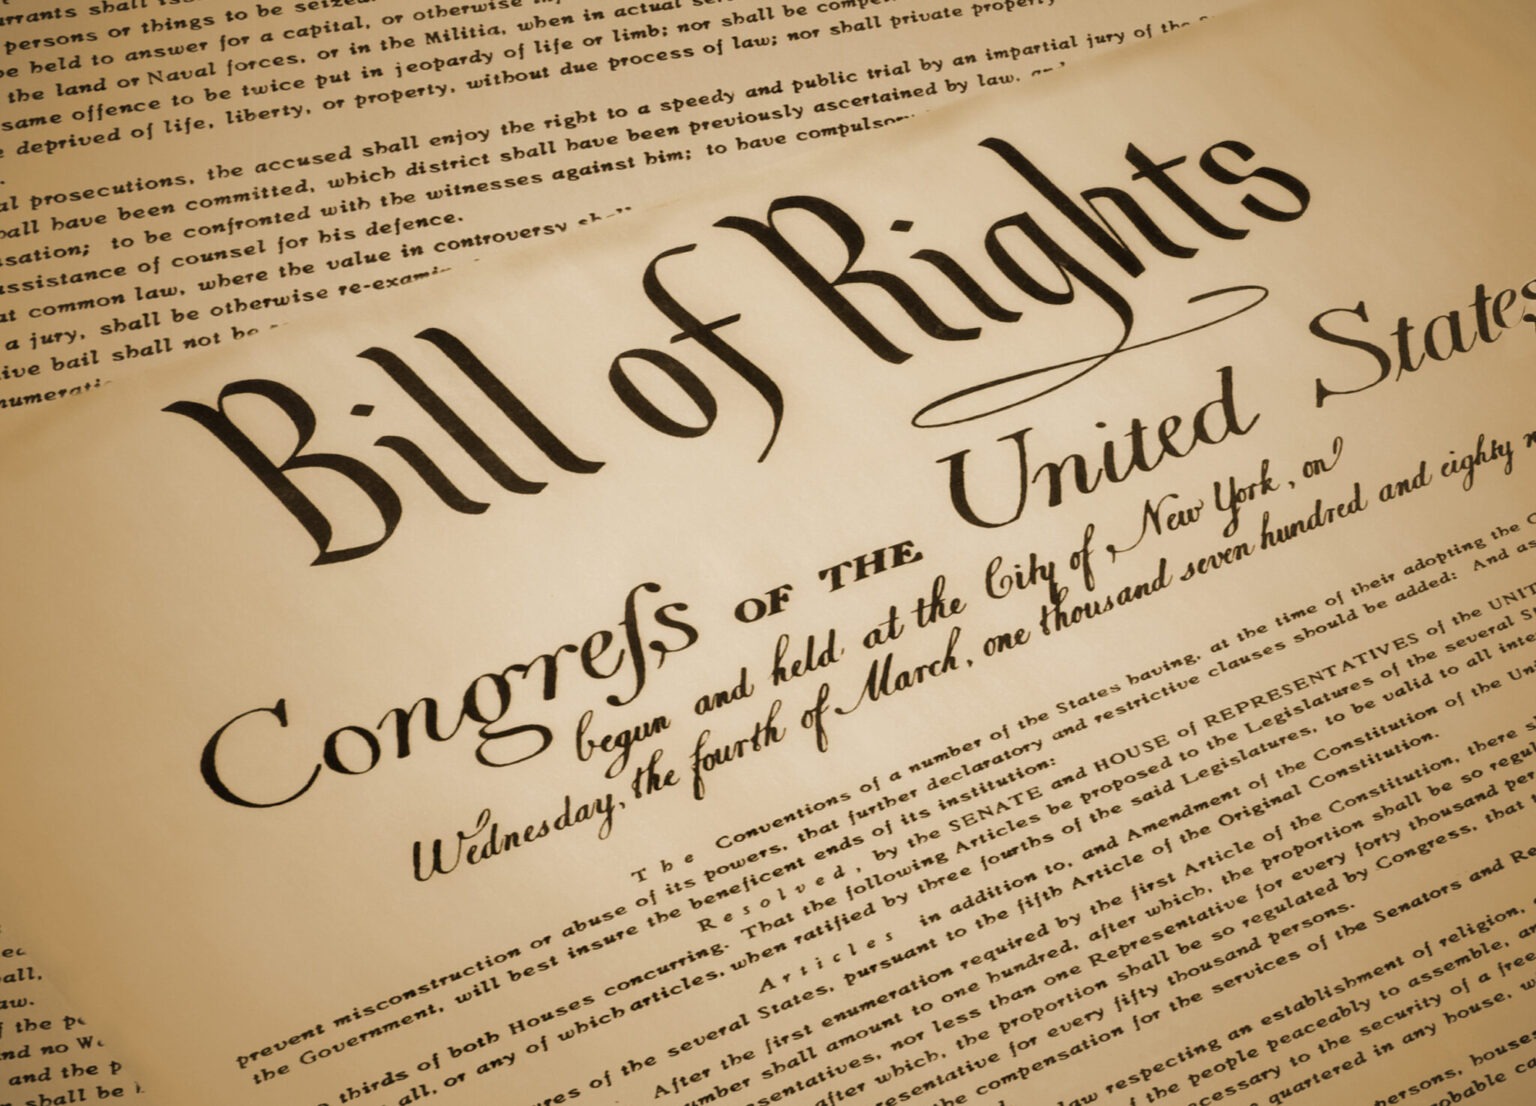 rrants shall iss
persons or things to be seized.
be held to answer for a capital, or otherwise
the land or Naval forces, or in the Militia, when in actual
same offence to be twice put in jeopardy of life or limb; nor shall be compe
deprived of life, liberty, or property, without due process of law; nor shall private property
al prosecutions, the accused shall enjoy the right to a speedy and public trial by an impartial jury of the
hall have been committed, which district shall have been previously ascertained by law, and
sation; to be confronted with the witnesses against him; to have compulsory
assistance of counsel for his defence.
at common law, where the value in controversy shall
a jury, shall be otherwise re-examin
ive bail shall not be
numerati
Bill of Rights
Congreſs OF THE United States
begun and held at the City of New York, on
Wednesday, the fourth of March, one thousand seven hundred and eighty n
The Conventions of a number of the States having, at the time of their adopting the C
prevent misconstruction or abuse of its powers, that further declaratory and restrictive clauses should be added: And as
the Government, will best insure the beneficent ends of its institution:
Resolved, by the SENATE and HOUSE of REPRESENTATIVES of the UNIT
thirds of both Houses concurring. That the following Articles be proposed to the Legislatures of the several S
all, or any of which articles, when ratified by three fourths of the said Legislatures, to be valid to all inte
Articles in addition to, and Amendment of the Constitution of the Uni
ures of the several States, pursuant to the fifth Article of the Original Constitution.
After the first enumeration required by the first Article of the Constitution, there s
mber shall amount to one hundred, after which, the proportion shall be so regul
sentatives, nor less than one Representative for every forty thousand per
after which, the proportion shall be so regulated by Congress, that
resentative for every fifty thousand persons.
the compensation for the services of the Senators and Re
law respecting an establishment of religion,
the people peaceably to assemble, an
ecessary to the security of a free
quartered in any house, w
persons, house
robable ca
all,
aw.
f the pe
nd no Wa
and the p
shall be